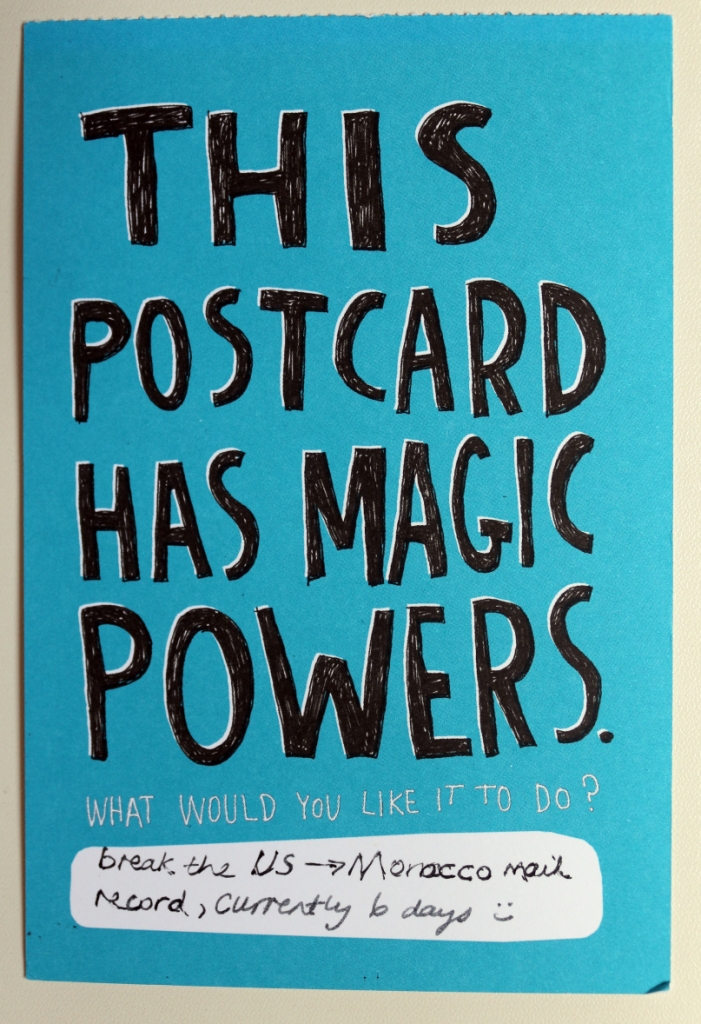 THIS
POSTCARD
HAS MAGIC
POWERS.
WHAT WOULD YOU LIKE IT TO DO?
break the US → Monacco mail
record, currently 6 days :)